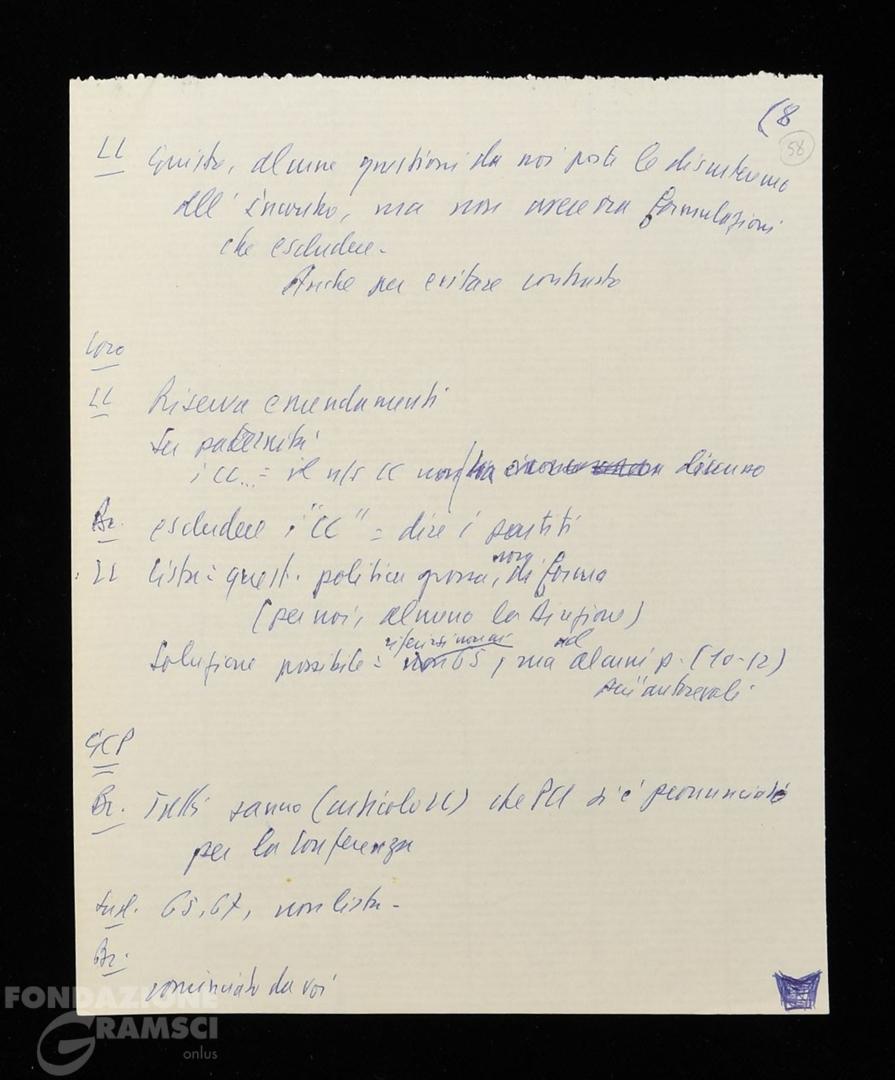 (8
58
LL Giusto, alcune questioni da noi poste le discuteremo
all'incontro, ma non avere ora formulazioni
che escludere -
Anche per evitare contrasto
Loro
LL Riserva emendamenti
Su paternità
i CC... = il n/s CC non discusso
Br. escludere i "CC" = dire i partiti
LL Lista = quest. politica grossa, non di forma
(per noi, almeno la Direzione)
Soluzione possibile = riferirsi non ai 65, ma ad alcuni p. (10-12)
più autorevoli
GCP
Br. Tutti sanno (articolo LL) che PCI si è pronunciato
per la Conferenza
Susl. 65, 67, non lista -
Br.
cominciato da voi
FONDAZIONE
GRAMSCI
onlus